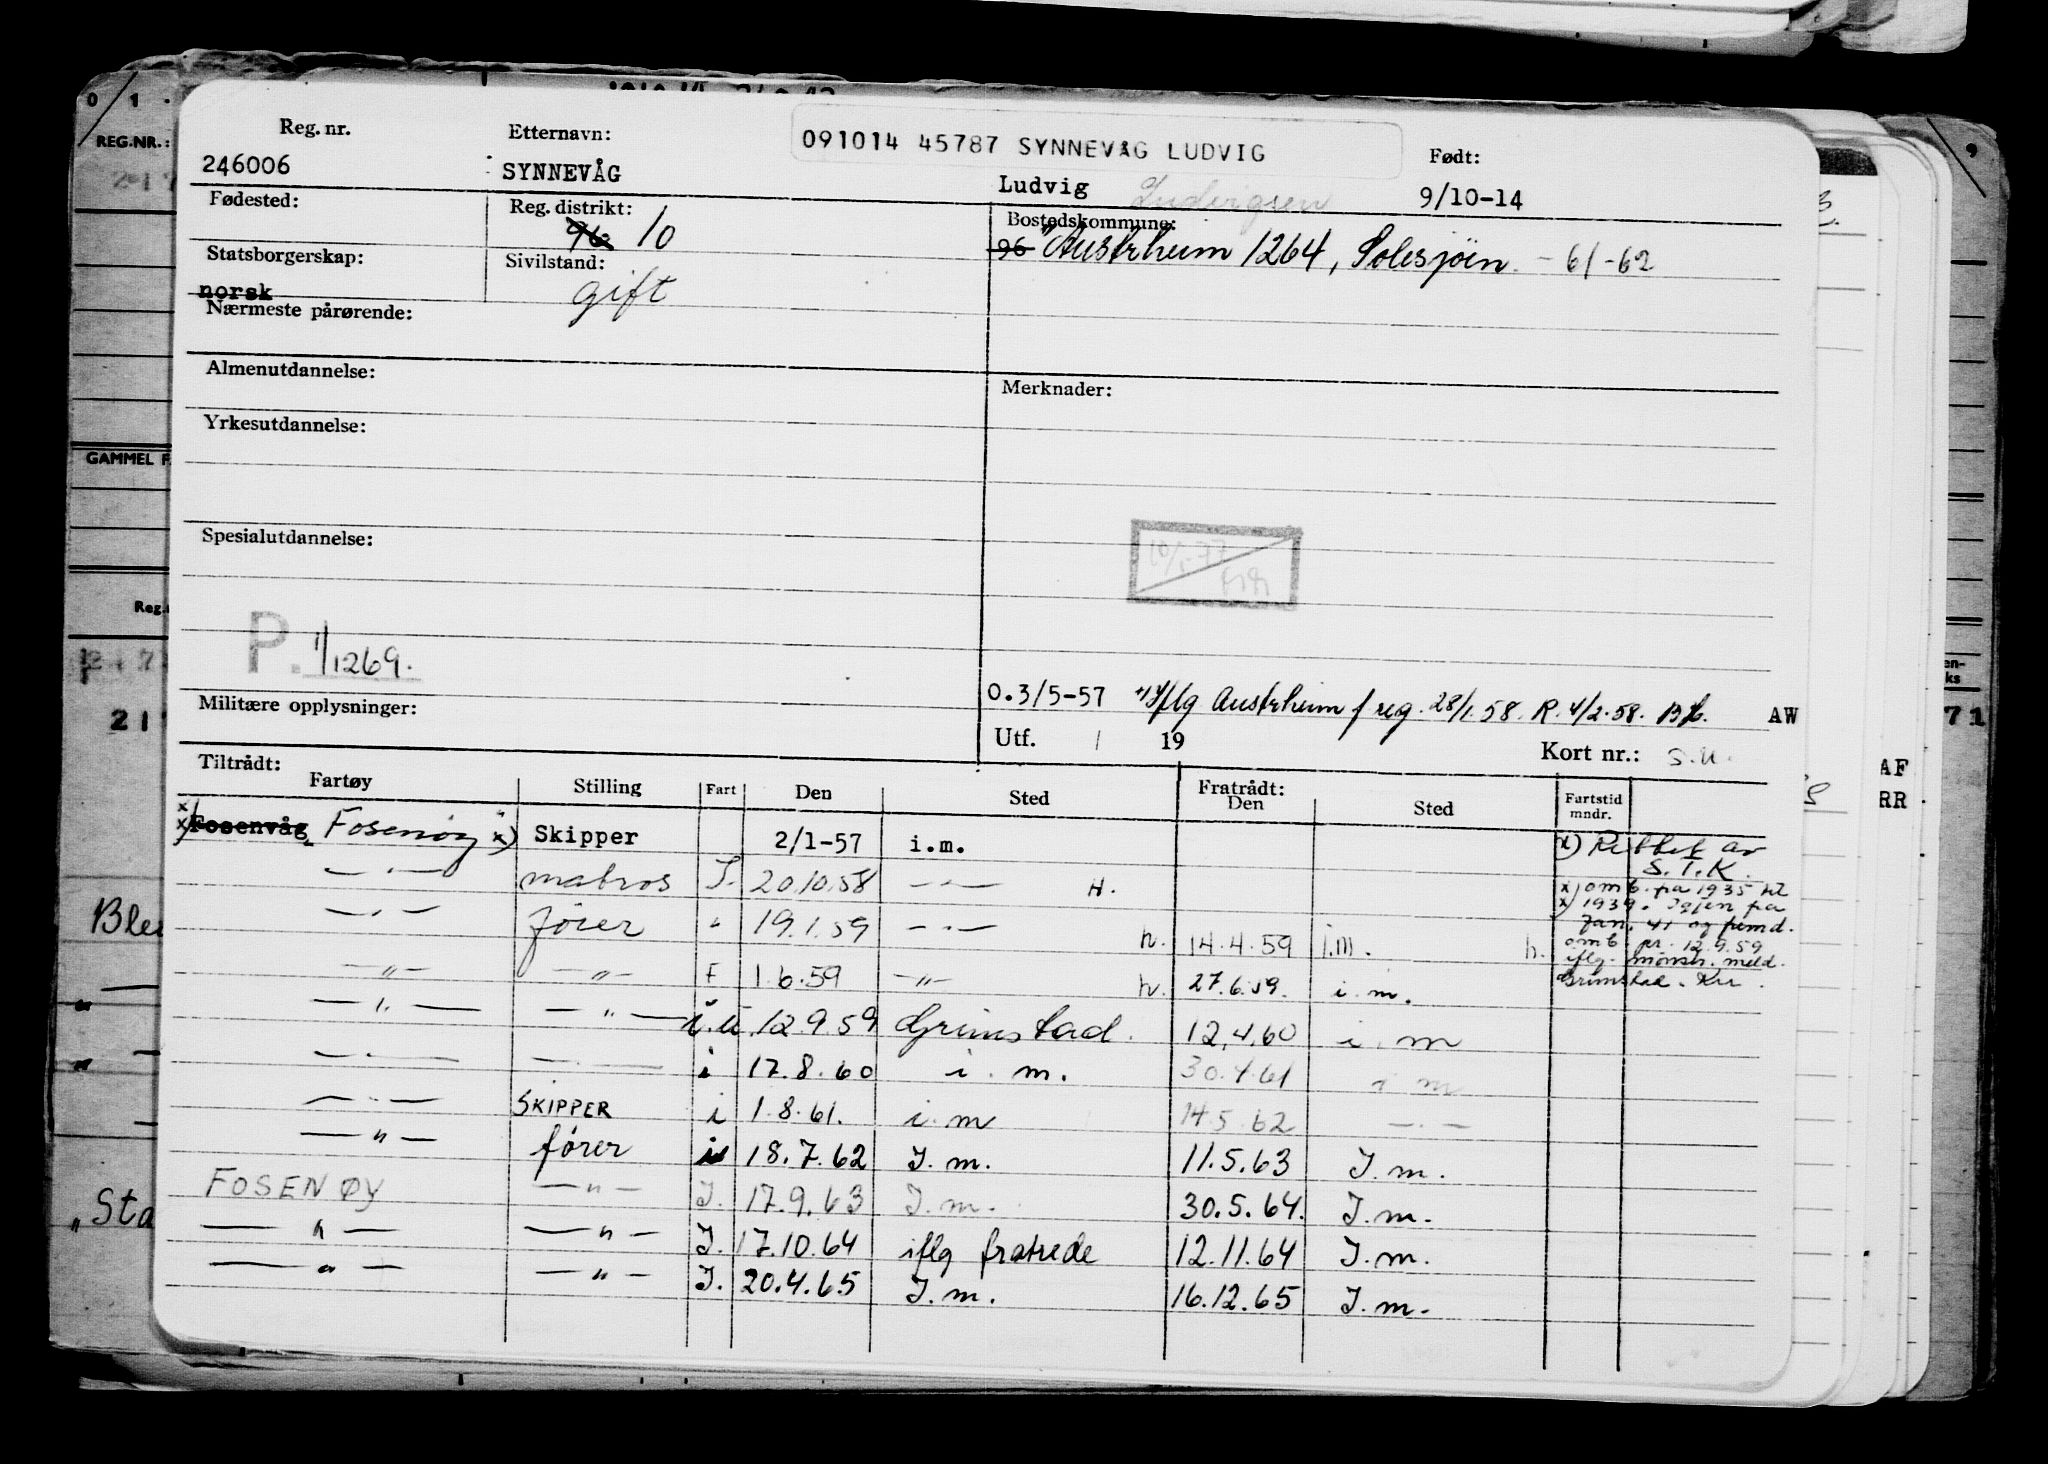 0/1.
REG.NR.:
GAMMEL F
Reg.
217
Blei
"Sta
Reg. nr. Etternavn: 091014 45787 SYNNEVÅG LUDVIG Født:
246006 SYNNEVÅG Ludvig Ludvigsen 9/10-14
Fødested: Reg. distrikt: Bostedskommune:
96 10 96 Austrheim 1264, Solesjøen - 61-62
Statsborgerskap: Sivilstand:
norsk gift
Nærmeste pårørende:
Almenutdannelse: Merknader:
Yrkesutdannelse:
Spesialutdannelse:
P. 1/1269.
O.3/5-57 iflg Austrheim f reg. 28/1.58. R. 4/2.58. AW
Militære opplysninger:
Utf. / 19 Kort nr.: S.U.
Tiltrådt: Fratrådt:
Fartøy Stilling Fart Den Sted Den Sted Fartstid mndr.
x) Fosenvåg Fosenøy x) Skipper 2/1-57 i.m. x) Rettet av
S.T.K.
— " — matros I. 20.10.58 — " — H. x) omb. fra 1935 til
x) 1939. Igjen fra
— " — fører " 19.1.59 — " — h. 14.4.59 i.m. h. Jan. 41 og fremd.
omb. pr. 12.9.59
iflg. mønstr. meld.
— " — — " — F 1.6.59 — " — h. 27.6.59. i.m. Grimstad.
— " — — " — i.u. 12.9.59 Grimstad. 12.4.60 i.m
— " — — " — i 17.8.60 i.m. 30.4.61 i m
— " — SKIPPER i 1.8.61. i.m 14.5.62 — " —
— " — fører i 18.7.62 I.m. 11.5.63 I.m.
FOSENØY — " — I. 17.9.63 I.m. 30.5.64. I.m.
— " — — " — I. 17.10.64 iflg fratrede 12.11.64 I.m.
— " — — " — I. 20.4.65 I.m. 16.12.65 I.m.
AF
RR
71